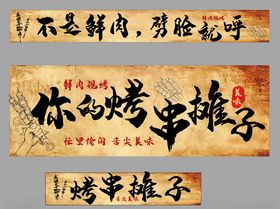 不是鲜肉,劈脸就呼
鲜肉现烤
你的烤串摊子
美味
忙里偷闲 舌尖美味
烤串摊子